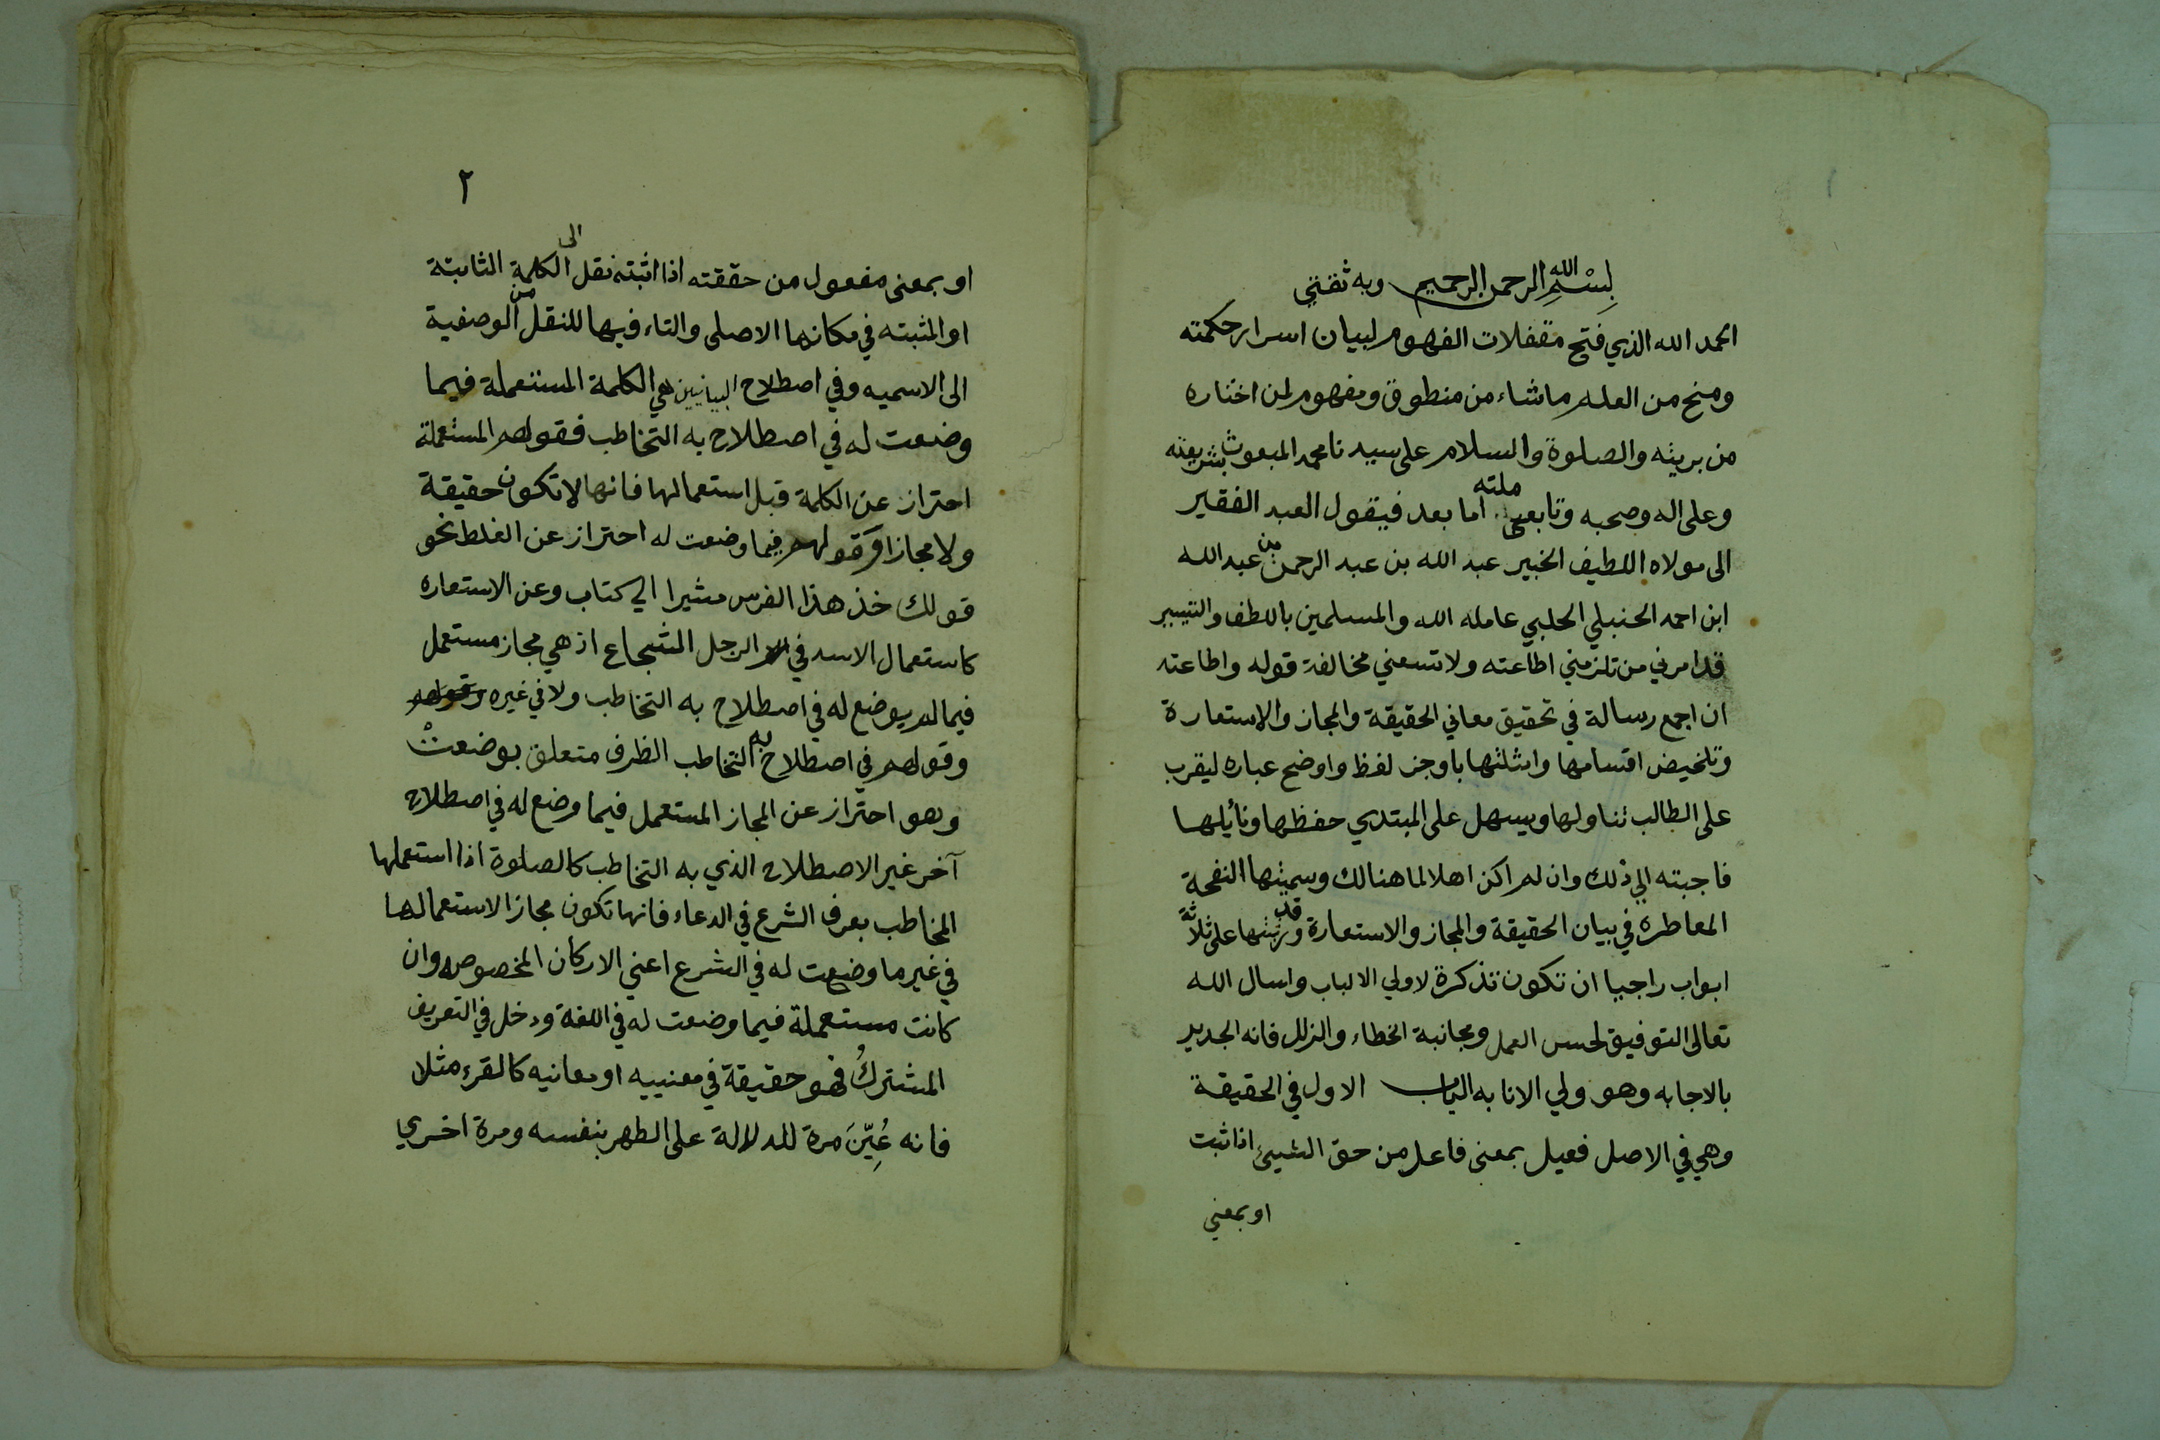 ١
بسم الله الرحمن الرحيم وبه ثقتي
الحمد الله الذي فتح مقفلات الفهوم لبيان اسرار حكمته
ومنح من العلم ما شاء من منطوق ومفهوم لمن اختاره
من بريته والصلوة والسلام على سيدنا محمد المبعوث بشريعته
وعلى اله وصحبه وتابعي ملته اما بعد فيقول العبد الفقير
الى مولاه اللطيف الخبير عبد الله بن عبد الرحمن بن عبد الله
ابن احمد الحنبلي الحلبي عامله الله والمسلمين باللطف والتيسير
قد امرني من تلزمني اطاعته ولا تسعني مخالفة قوله واطاعته
ان اجمع رسالة في تحقيق معاني الحقيقة والمجاز والاستعارة
وتلخيض اقسامها وامثلتها باوجز لفظ واوضح عباره ليقرب
على الطالب تناولها ويسهل على المبتدي حفظها ونائلها
فاجبته الي ذلك وان لم اكن اهلا لما هنالك وسميتها النفحة
المعاطره في بيان الحقيقة والمجاز والاستعارة وقد رتبتها على ثلاثة
ابواب راجيا ان تكون تذكرة لاولي الالباب واسال الله
تعالى التوفيق لحسن العمل ومجانبة الخطاء والزلل فانه الجدير
بالاجابه وهو ولي الانابه الباب الاول في الحقيقة
وهي في الاصل فعيل بمعنى فاعل من حق الشيئ اذا ثبت
او بمعني
٢
او بمعنى مفعول من حققته اذا اثبته نقل الى الكلمة الثابتة
او المثبته في مكانها الاصلي والتاء فيها للنقل من الوصفية
الى الاسميه وفي اصطلاح البيانيين هي الكلمة المستعملة فيما
وضعت له في اصطلاح به التخاطب فقولهم المستعملة
احتراز عن الكلمة قبل استعمالها فانها لا تكون حقيقة
ولا مجازا وقولهم فيما وضعت له احتراز عن الغلط نحو
قولك خذ هذا الفرس مشيرا الي كتاب وعن الاستعاره
كاستعمال الاسد في الرجل الشجاع اذ هي مجاز مستعمل
فيما لم يوضع له في اصطلاح به التخاطب ولا في غيره وقولهم
وقولهم في اصطلاح به التخاطب الظرف متعلق بوضعت
وهو احتراز عن المجاز المستعمل فيما وضع له في اصطلاح
آخر غير الاصطلاح الذي به التخاطب كالصلوة اذا استعملها
المخاطب بعرف الشرع في الدعاء فانها تكون مجازا لاستعمالها
في غير ما وضعت له في الشرع اعني الاركان المخصوصه وان
كانت مستعملة فيما وضعت له في اللغة ودخل في التعريف
المشترك فهو حقيقة في معنييه او معانيه كالقرء مثلا
فانه عُيِّنَ مرة للدلالة على الطهر بنفسه ومرة اخري